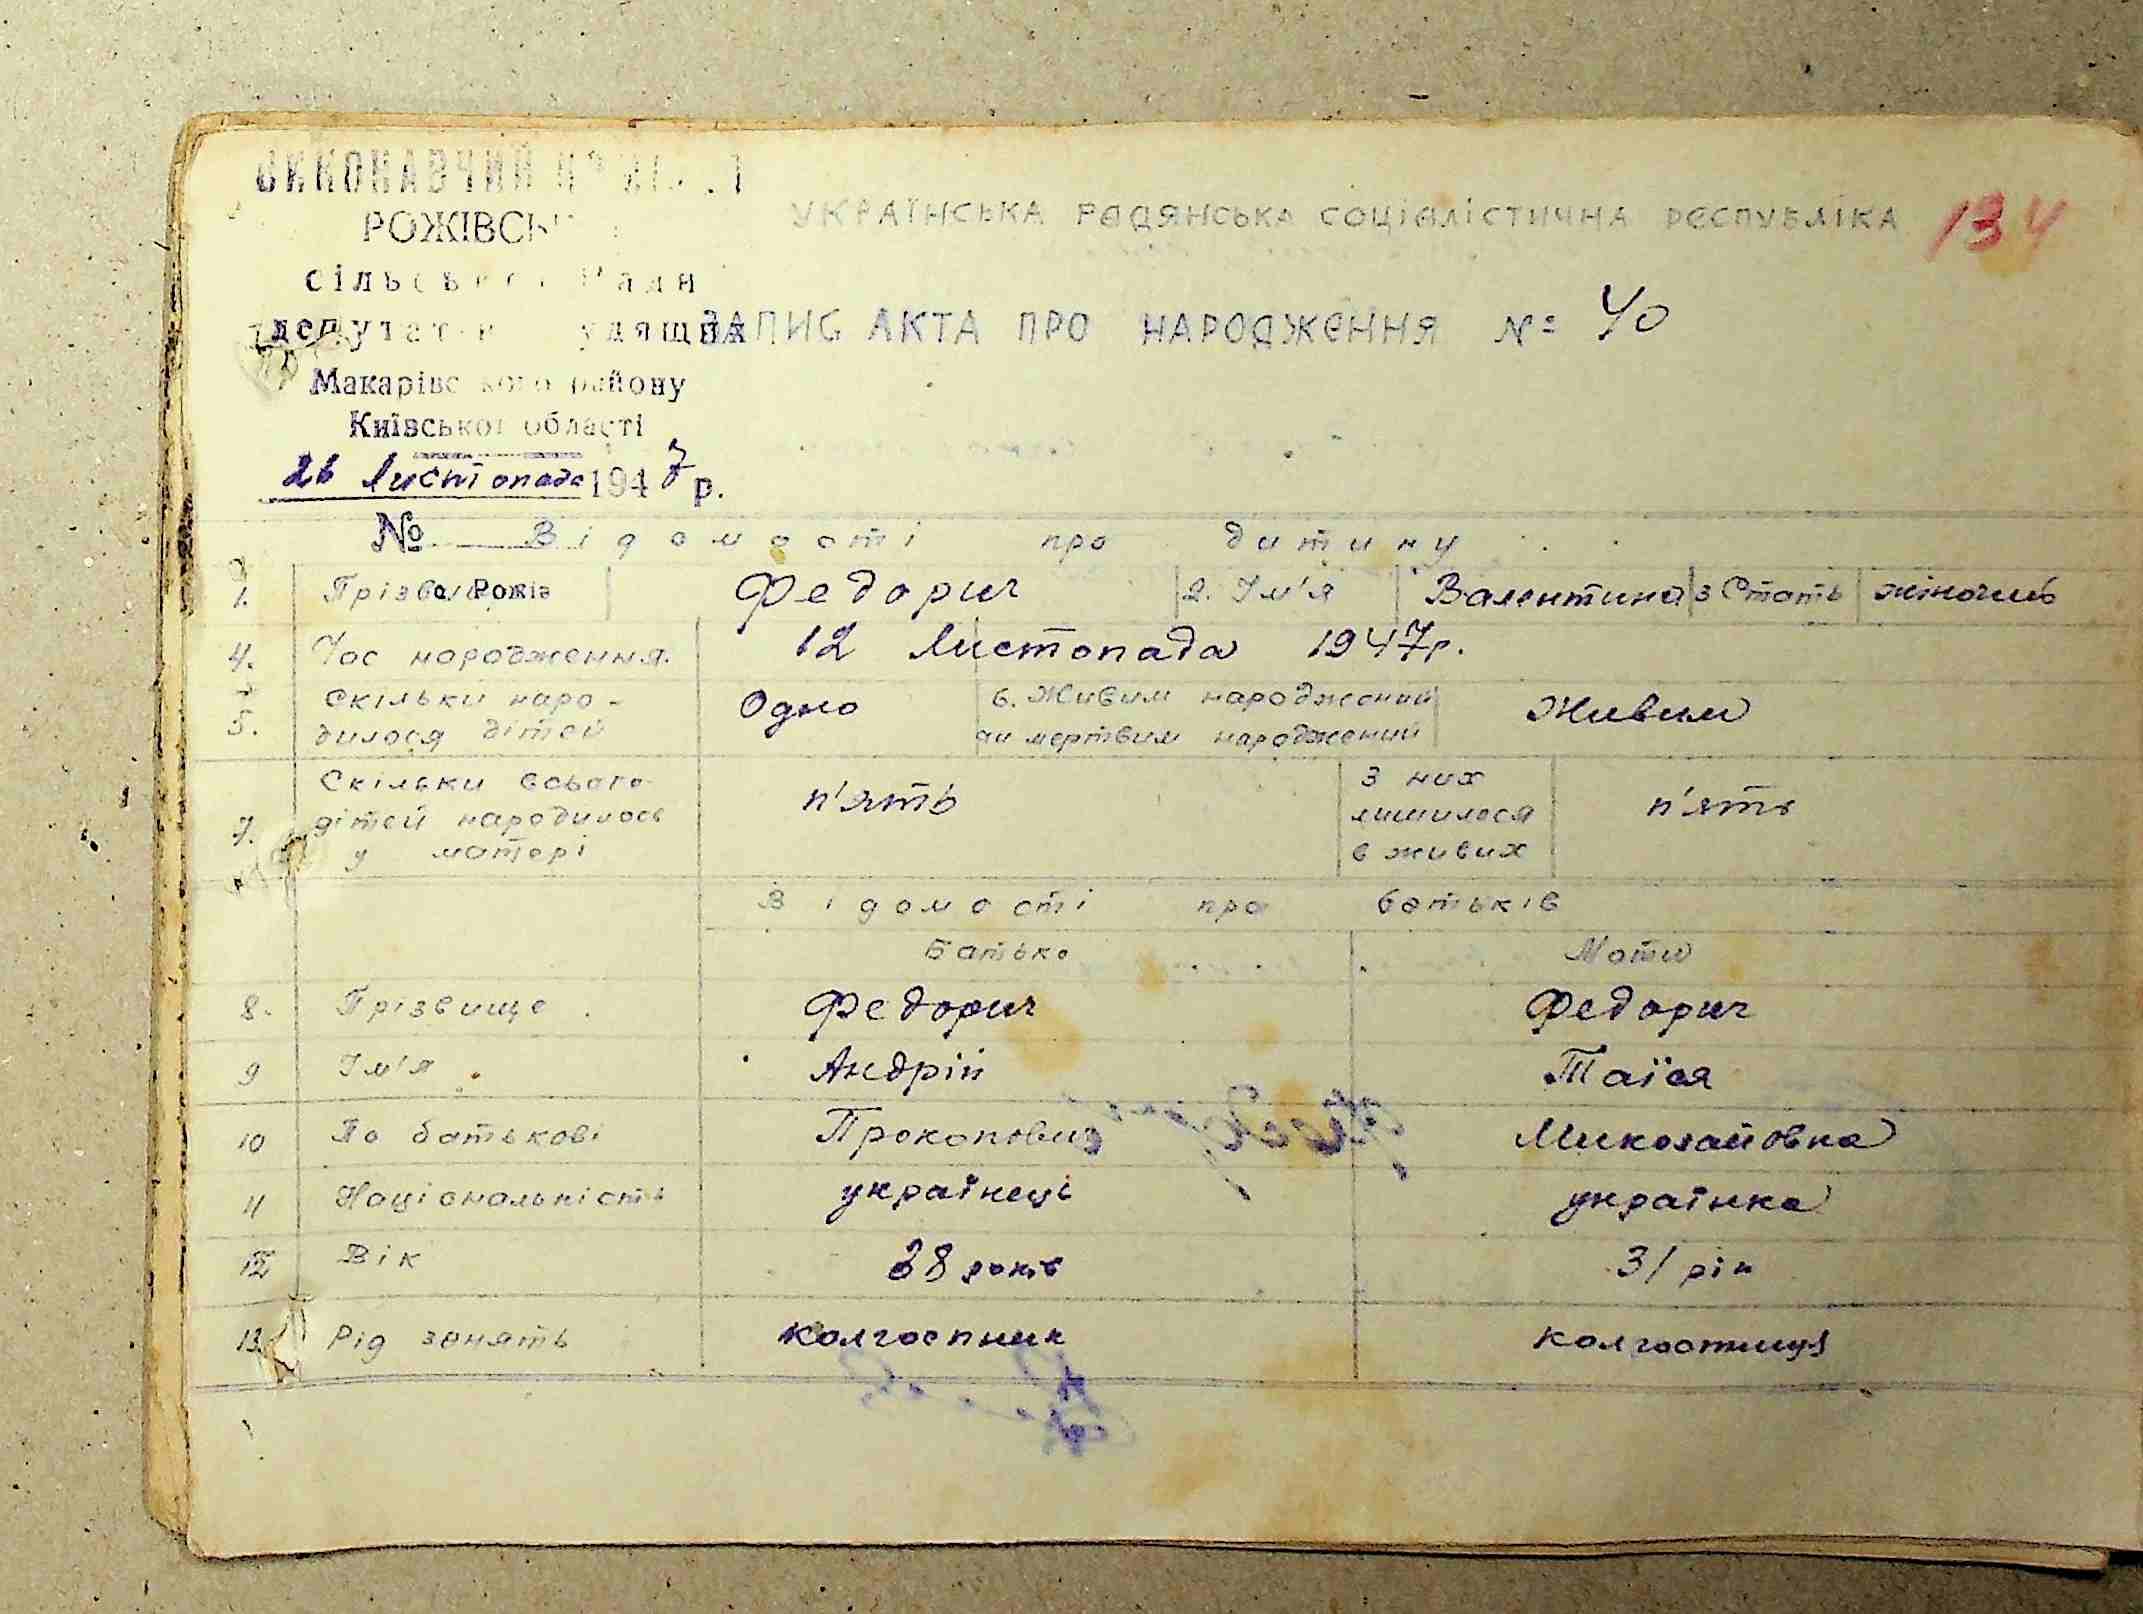 ВИКОНАВЧИЙ
РОЖІВСЬ
УКРАЇНСЬКА РАДЯНСЬКА СОЦІАЛІСТИЧНА РЕСПУБЛІКА 134
сільської Ради
депутатів трудящих
ЗАПИС АКТА ПРО НАРОДЖЕННЯ № 40
Макарівського району
Київської області
26 Листопада 1947 р.
№ Відомості про дитину
с. Рожів
1. Прізвище Федорич 2. Ім'я Валентина 3 Стать жіноча
4. Час народження. 12 Листопада 1947 р.
5. Скільки наро-
дилося дітей Одно 6. Живим народжений
чи мертвим народжений Живим
7. Скільки всього
дітей народилось
у матері п'ять З них
лишилося
в живих п'ять
Відомості про батьків
Батько Мати
8. Прізвище Федорич Федорич
9 Ім'я Андрій Таїся
10 По батькові Прокопович Миколайовна
11 Національність українець українка
12 Вік 38 років 31 рік
13. Рід занять колгоспник колгоспниця